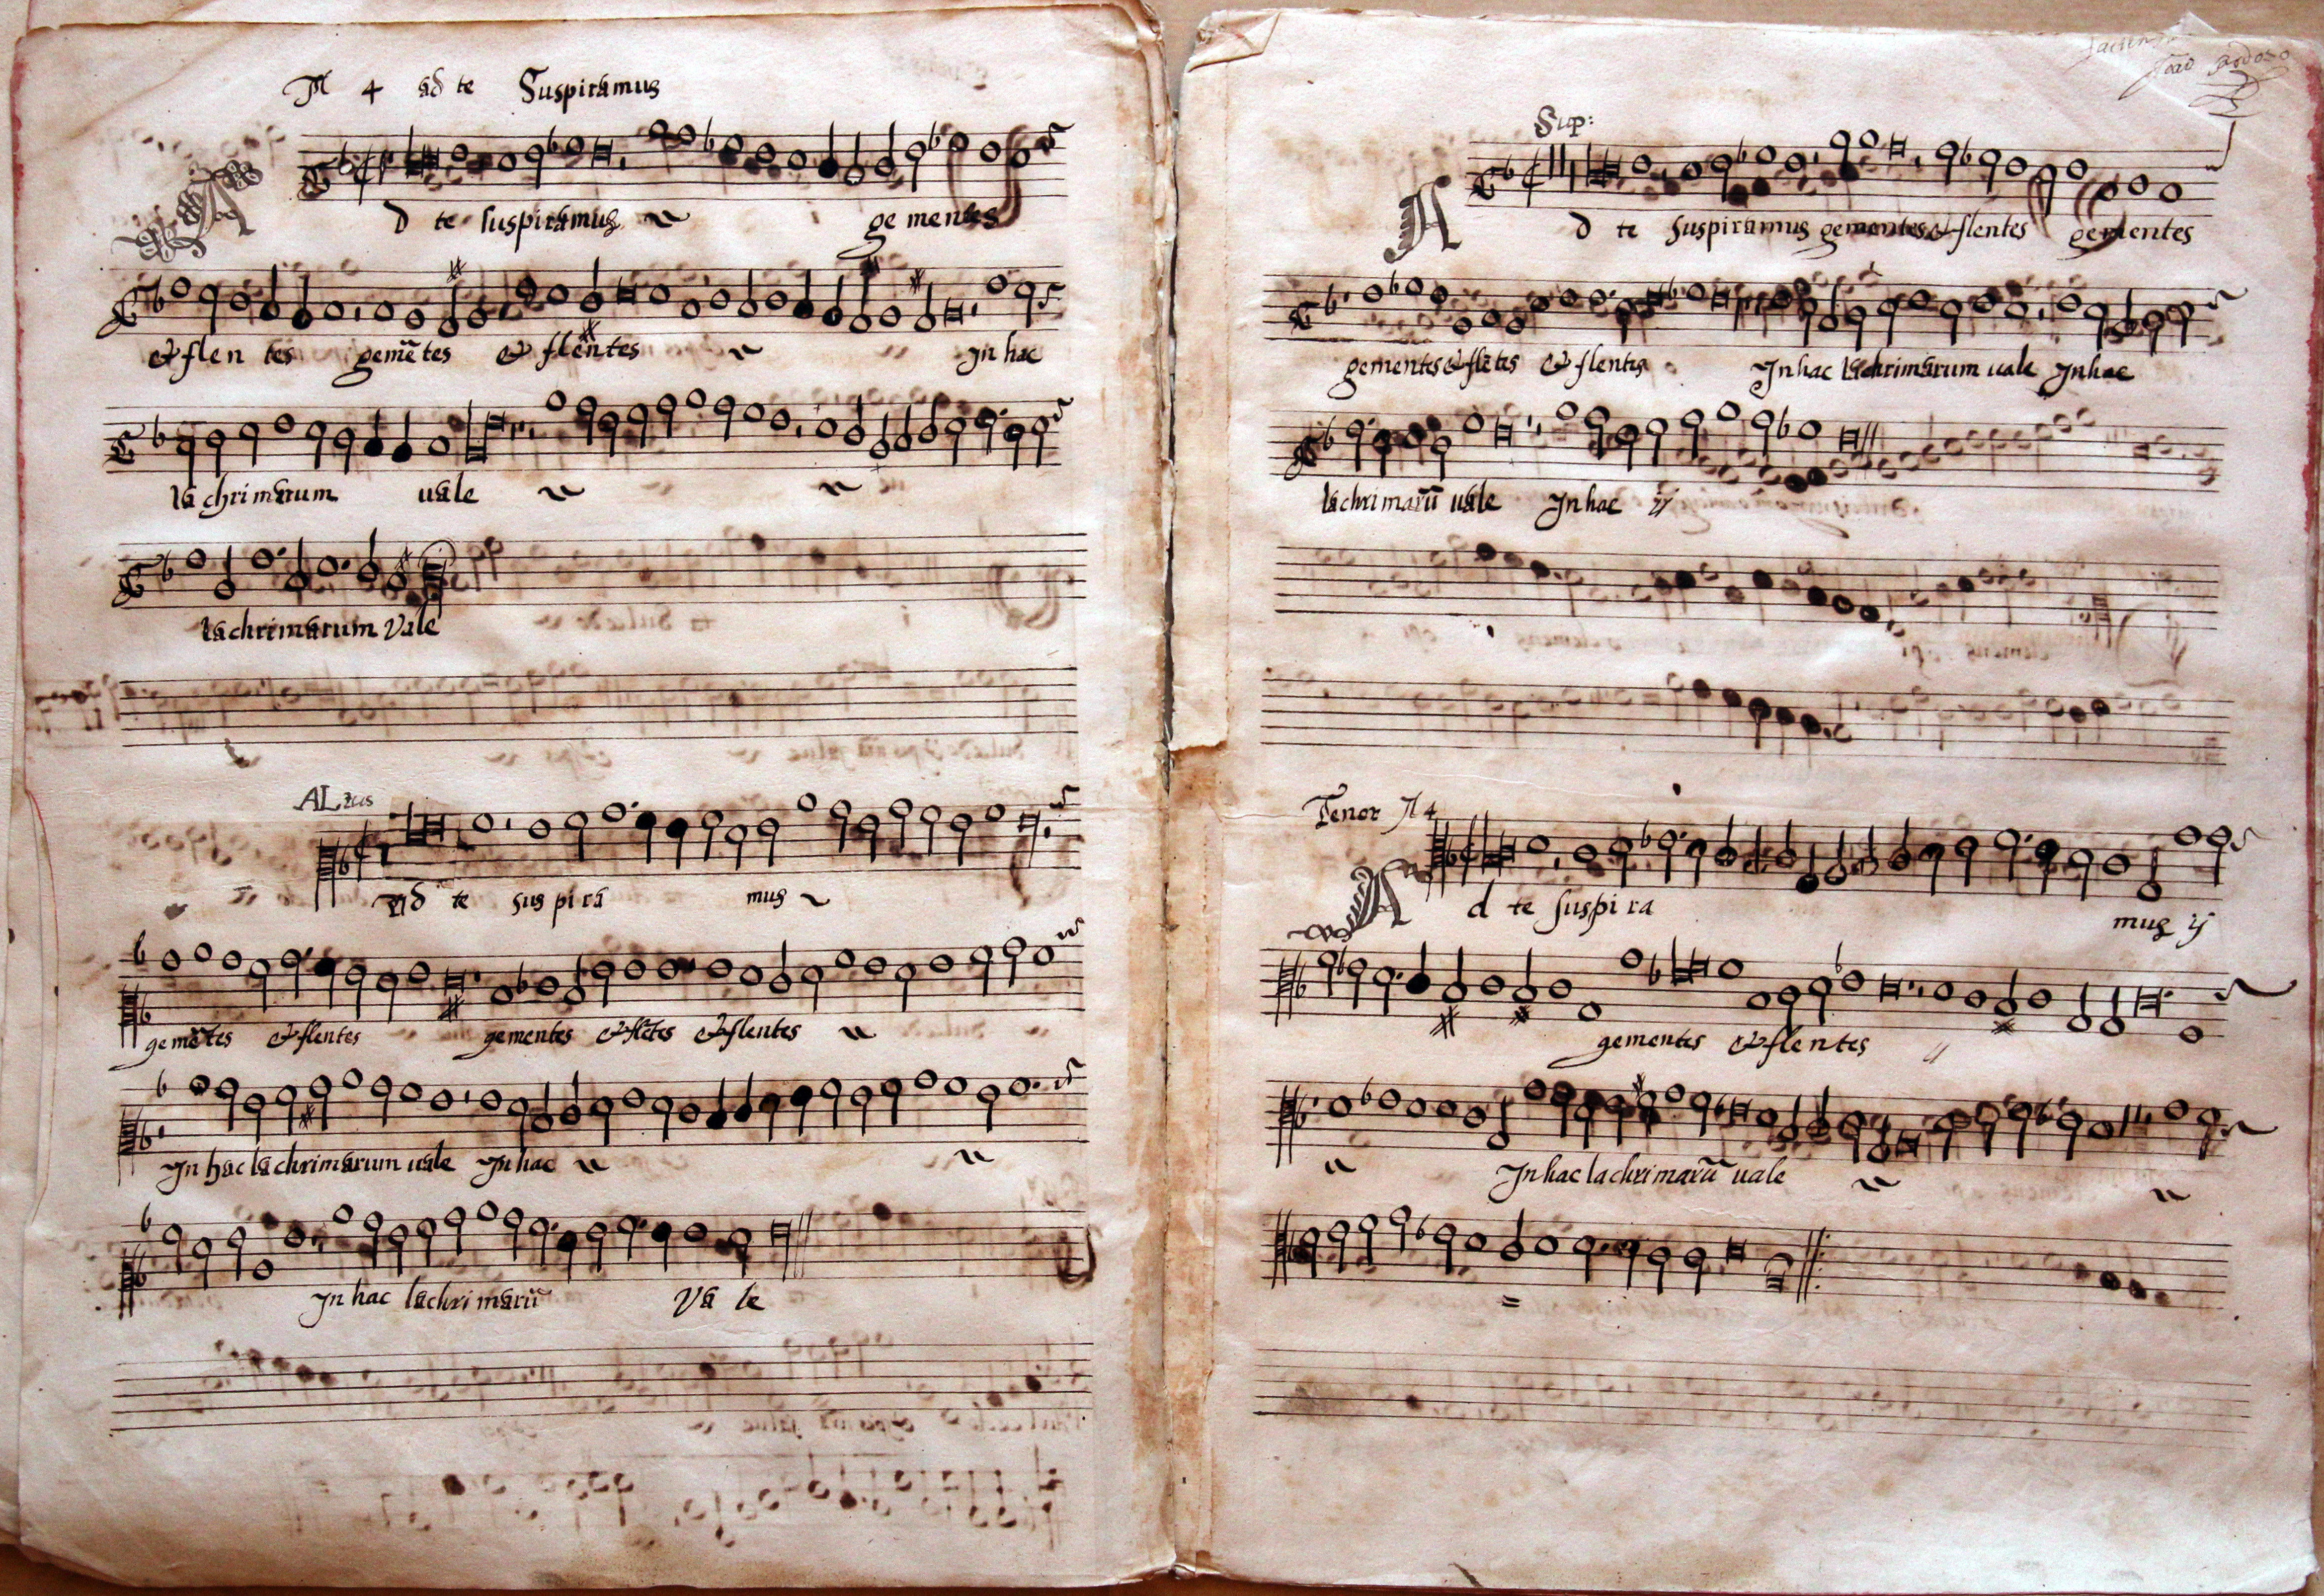 A 4 ad te Suspiramus
Ad te suspiramus gementes
& flen tes gemẽtes & flentes In hac
lachrimarum uale
lachrimarum Vale
ALtus
Ad te sus pira mus
gemẽtes & flentes gementes & flẽtes & flentes
In hac lachrimarum uale In hac
In hac lachrimarũ Va le
Sup:
Ad te Suspiramus gementes & flentes gementes
gementes & flẽtes & flentes In hac lachrimarum uale In hac
lachrimarũ uale In hac ij
Tenor A 4
Ad te suspira mus ij
gementes & flentes
In hac lachrimarũ uale